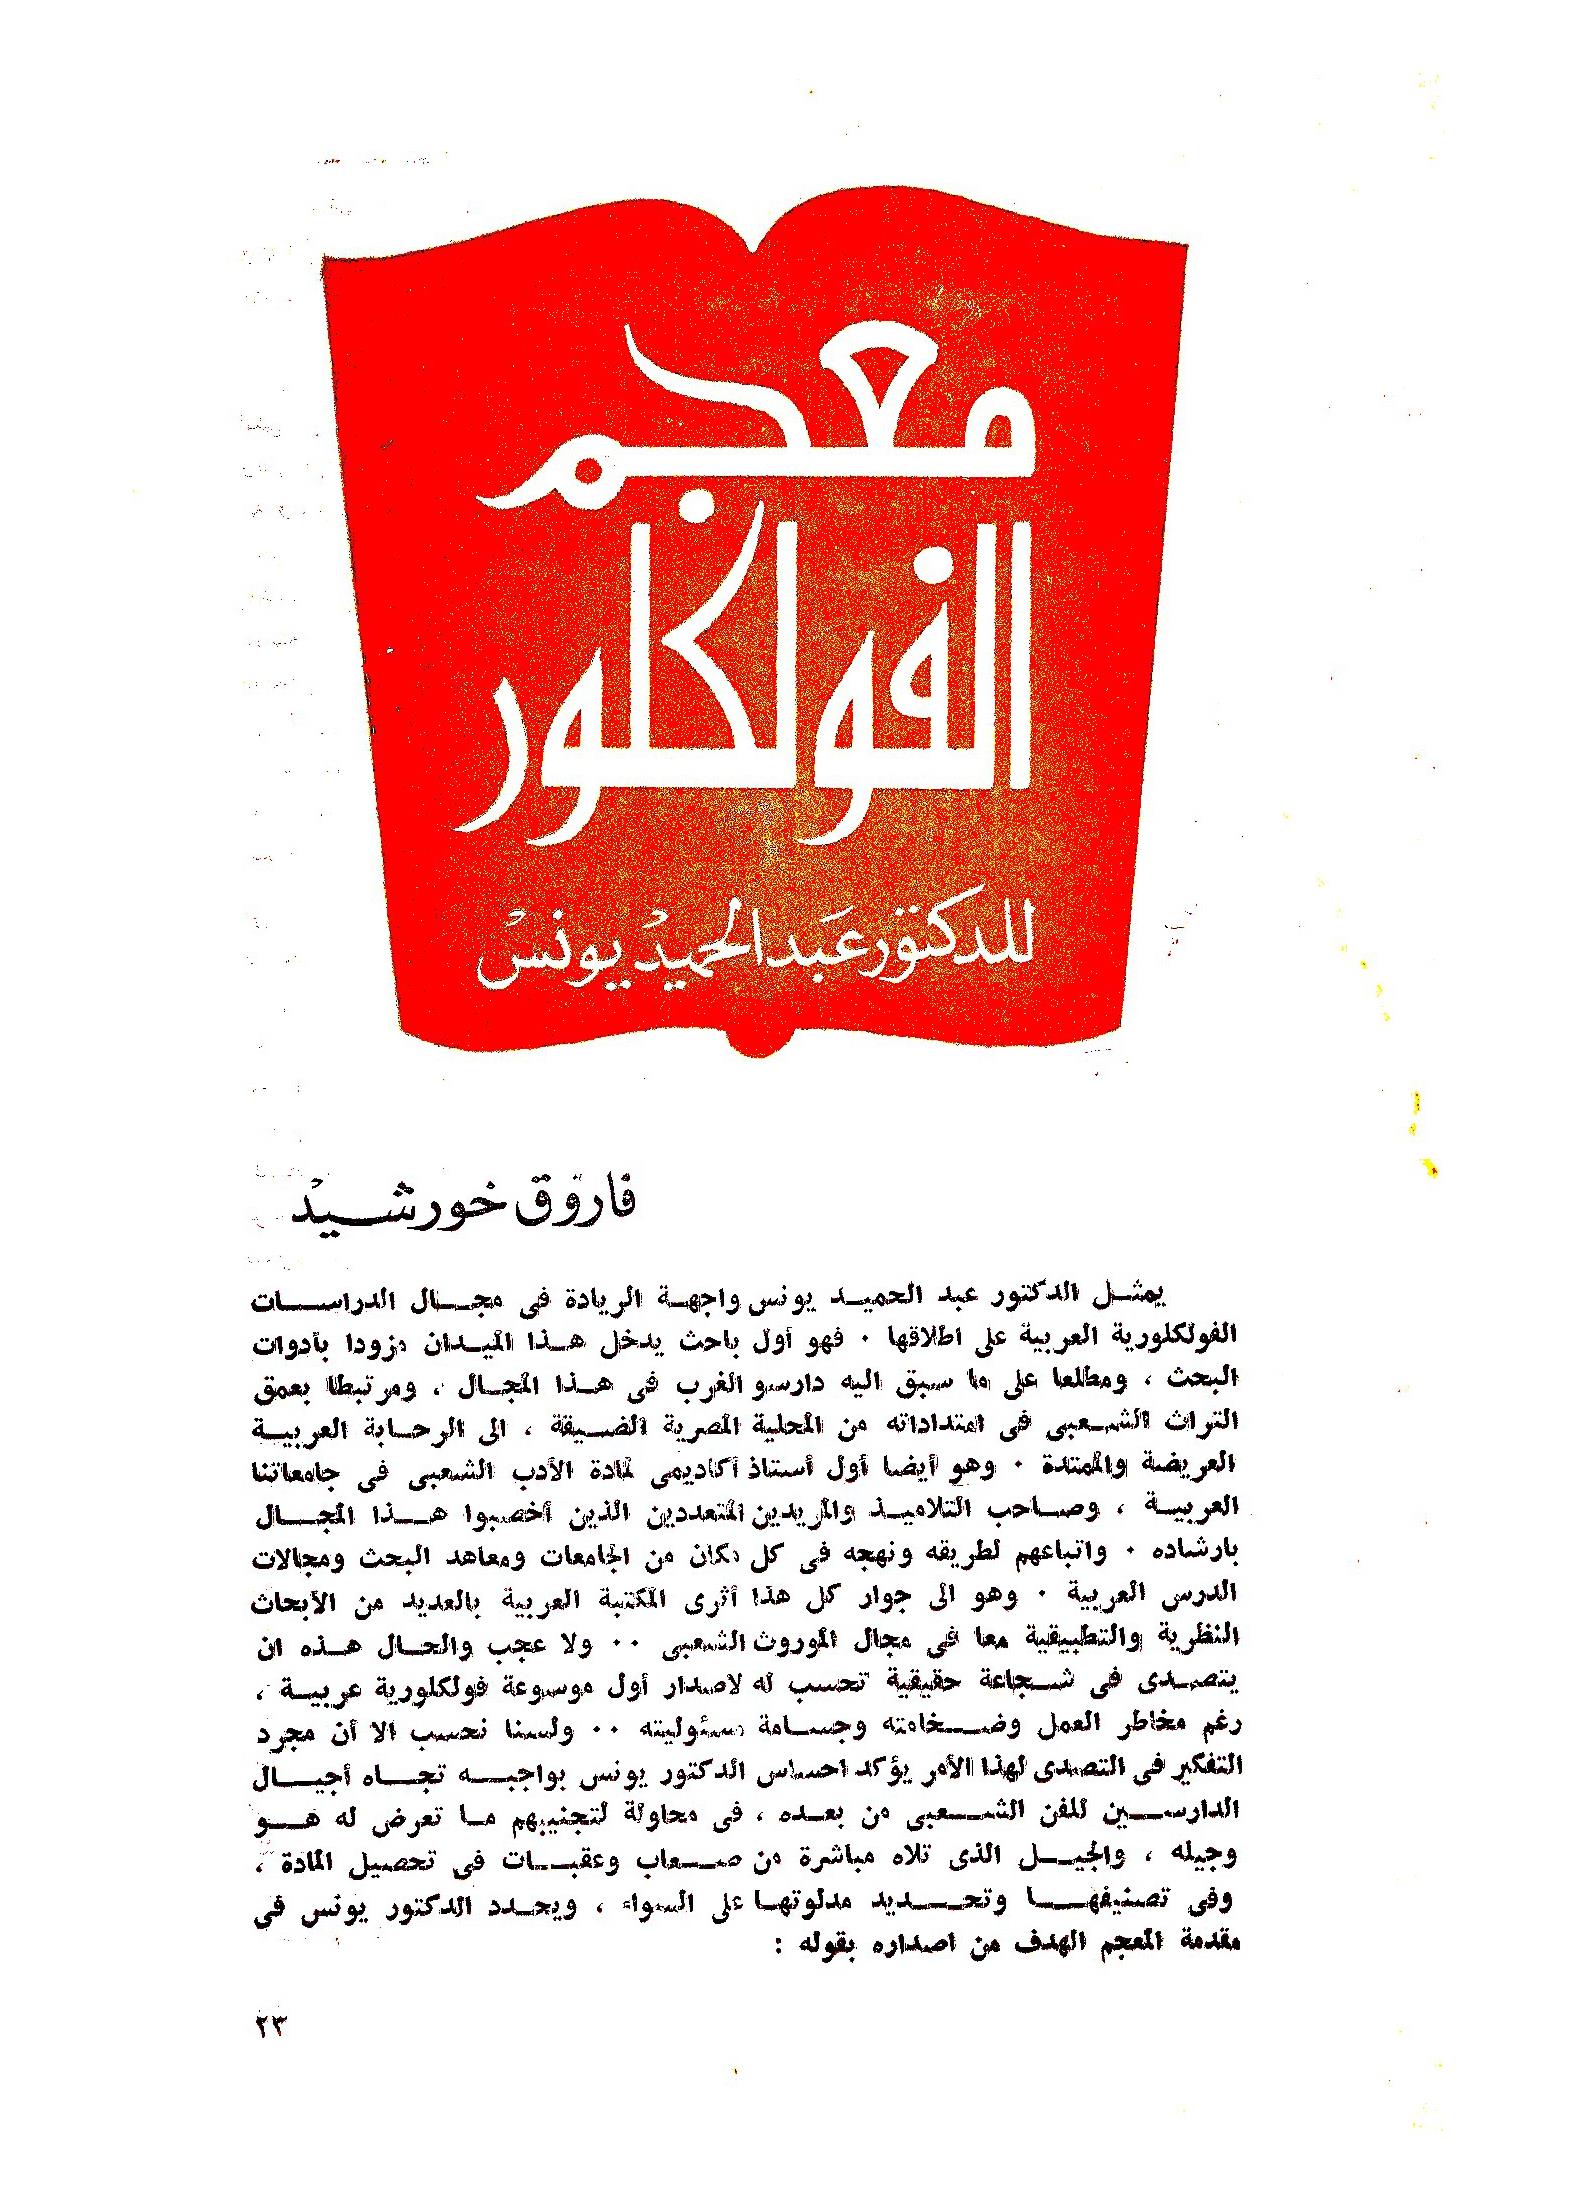 معجم
الفولكلور
للدكتور عبد الحميد يونس
فاروق خورشيد
يمثل الدكتور عبد الحميد يونس واجهة الريادة فى مجال الدراسات
الفولكلورية العربية على اطلاقها . فهو أول باحث يدخل هذا الميدان مزودا بأدوات
البحث ، ومطلعا على ما سبق اليه دارسو الغرب فى هذا المجال ، ومرتبطا بعمق
التراث الشعبى فى امتداداته من المحلية المصرية الضيقة ، الى الرحابة العربية
العريضة والممتدة . وهو أيضا أول أستاذ أكاديمى لمادة الأدب الشعبى فى جامعاتنا
العربية ، وصاحب التلاميذ والمريدين المتعددين الذين أخصبوا هذا المجال
بارشاده . واتباعهم لطريقه ونهجه فى كل مكان من الجامعات ومعاهد البحث ومجالات
الدرس العربية . وهو الى جوار كل هذا أثرى المكتبة العربية بالعديد من الأبحاث
النظرية والتطبيقية معا فى مجال الموروث الشعبى .. ولا عجب والحال هذه ان
يتصدى فى شجاعة حقيقية تحسب له لاصدار أول موسوعة فولكلورية عربية ،
رغم مخاطر العمل وضخامته وجسامة مسئوليته .. ولسنا نحسب الا أن مجرد
التفكير فى التصدى لهذا الأمر يؤكد احساس الدكتور يونس بواجبه تجاه أجيال
الدارسين للفن الشعبى من بعده ، فى محاولة لتجنيبهم ما تعرض له هو
وجيله ، والجيل الذى تلاه مباشرة من صعاب وعقبات فى تحصيل المادة ،
وفى تصنيفها وتحديد مدلوتها على السواء ، ويحدد الدكتور يونس فى
مقدمة المعجم الهدف من اصداره بقوله :
٢٣